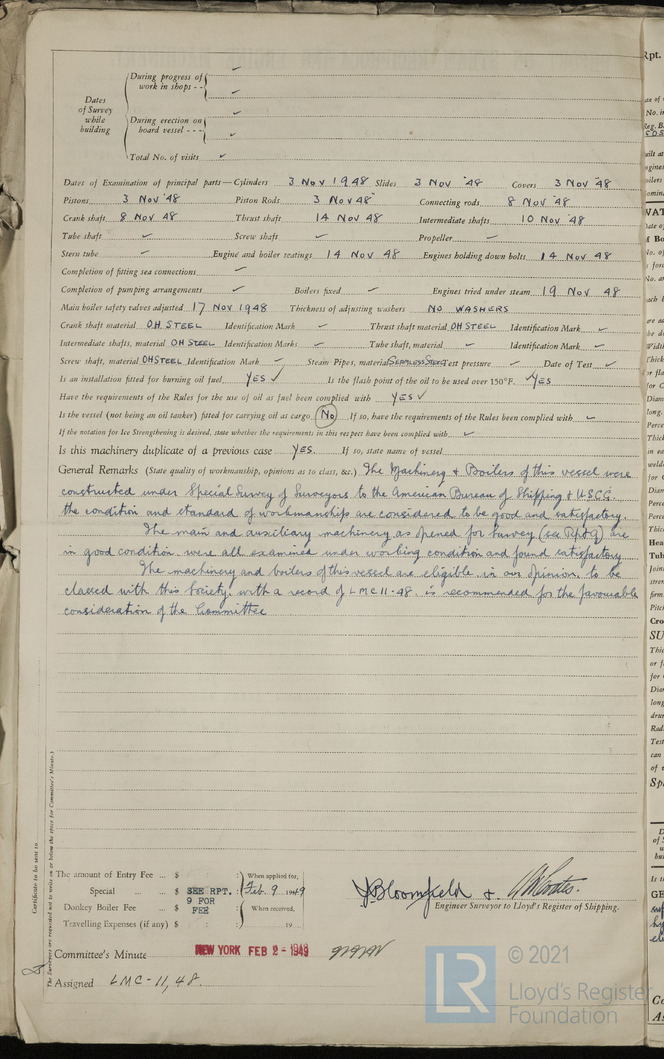 During progress of work in shops - - ✓ ✓
Dates of Survey while building
During erection on board vessel - - - ✓ ✓
Total No. of visits ✓
Dates of Examination of principal parts—Cylinders 3 Nov 1948 Slides 3 Nov '48 Covers 3 Nov '48
Pistons 3 Nov '48 Piston Rods 3 Nov 48 Connecting rods 8 Nov '48
Crank shaft 8 Nov 48 Thrust shaft 14 Nov 48 Intermediate shafts 10 Nov '48
Tube shaft ✓ Screw shaft ✓ Propeller ✓
Stern tube ✓ Engine and boiler seatings 14 Nov 48 Engines holding down bolts 14 Nov 48
Completion of fitting sea connections ✓
Completion of pumping arrangements ✓ Boilers fixed ✓ Engines tried under steam 19 Nov 48
Main boiler safety valves adjusted 17 Nov 1948 Thickness of adjusting washers NO WASHERS
Crank shaft material OH. STEEL Identification Mark ✓ Thrust shaft material OH STEEL Identification Mark ✓
Intermediate shafts, material OH STEEL Identification Marks ✓ Tube shaft, material ✓ Identification Mark ✓
Screw shaft, material OH STEEL Identification Mark ✓ Steam Pipes, material SEAMLESS STEEL Test pressure ✓ Date of Test ✓
Is an installation fitted for burning oil fuel YES ✓ Is the flash point of the oil to be used over 150°F. ✓YES
Have the requirements of the Rules for the use of oil as fuel been complied with YES ✓
Is the vessel (not being an oil tanker) fitted for carrying oil as cargo No If so, have the requirements of the Rules been complied with ✓
If the notation for Ice Strengthening is desired, state whether the requirements in this respect have been complied with ✓
Is this machinery duplicate of a previous case YES. If so, state name of vessel
General Remarks (State quality of workmanship, opinions as to class, &c.) The Machinery & Boilers of this vessel were
constructed under Special Survey of Surveyors to the American Bureau of Shipping & USCG.
the condition and standard of workmanship are considered to be good and satisfactory.
The main and auxiliary machinery as opened for Survey (see Rpt 9) are
in good condition. were all examined under working condition and found satisfactory
The machinery and boilers of this vessel are eligible in our opinion to be
classed with this Society. with a record of LMC 11-48. is recommended for the favourable
consideration of the Committee
The amount of Entry Fee ... $ : : When applied for,
Special ... ... $ SEE RPT. : Feb. 9 1949
9 FOR
Donkey Boiler Fee ... $ FEE : When received,
Travelling Expenses (if any) $ : : 19
J Bloomfield &
Engineer Surveyor to Lloyd's Register of Shipping.
Committee's Minute NEW YORK FEB 2 - 1949
Assigned LMC-11,48.
Certificate to be sent to
The Surveyors are requested not to write on or below the space for Committee's Minute.
© 2021
LR Lloyd's Register
Foundation